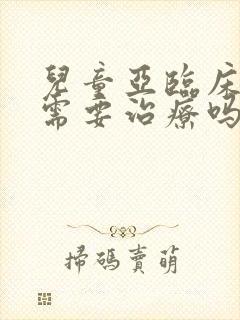 兒童亞臨床
需要治療嗎
掃碼賣萌